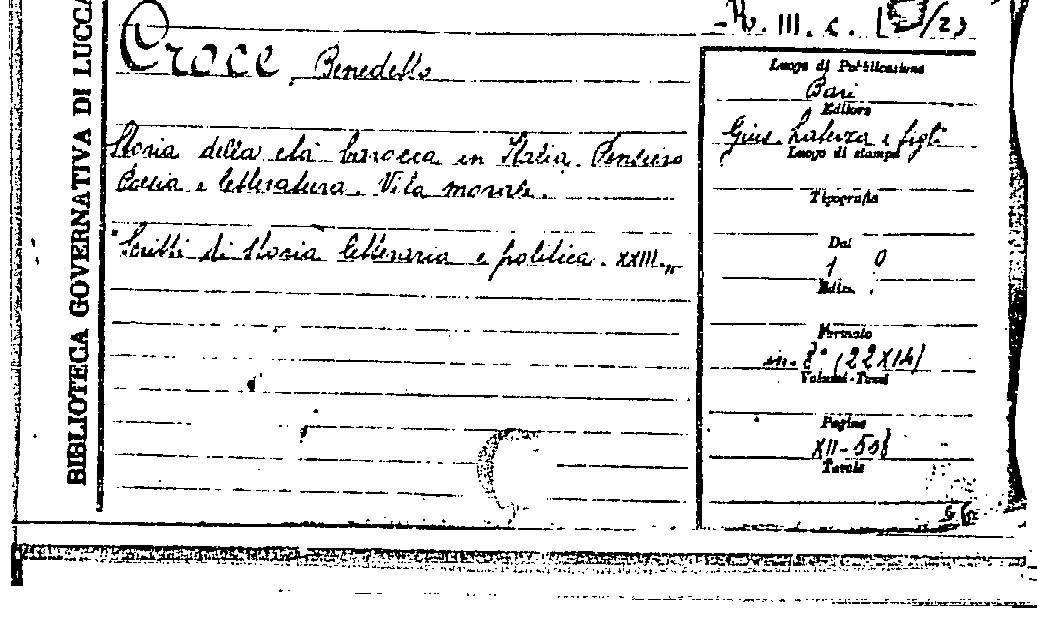 BIBLIOTECA GOVERNATIVA DI LUCCA
III. c.
Croce, Benedetto
Storia della età barocca in Italia. Pensiero
Poesia e letteratura. Vita morale.
"Scritti di storia letteraria e politica. XXIII."
Luogo di Pubblicazione
Bari
Editore
Gius. Laterza e figli
Luogo di stampa
Tipografia
Dal
1 0
Ediz.
Formato
in-8° (22X14)
Volumi-Tomi
Pagine
XII-508
Tavole